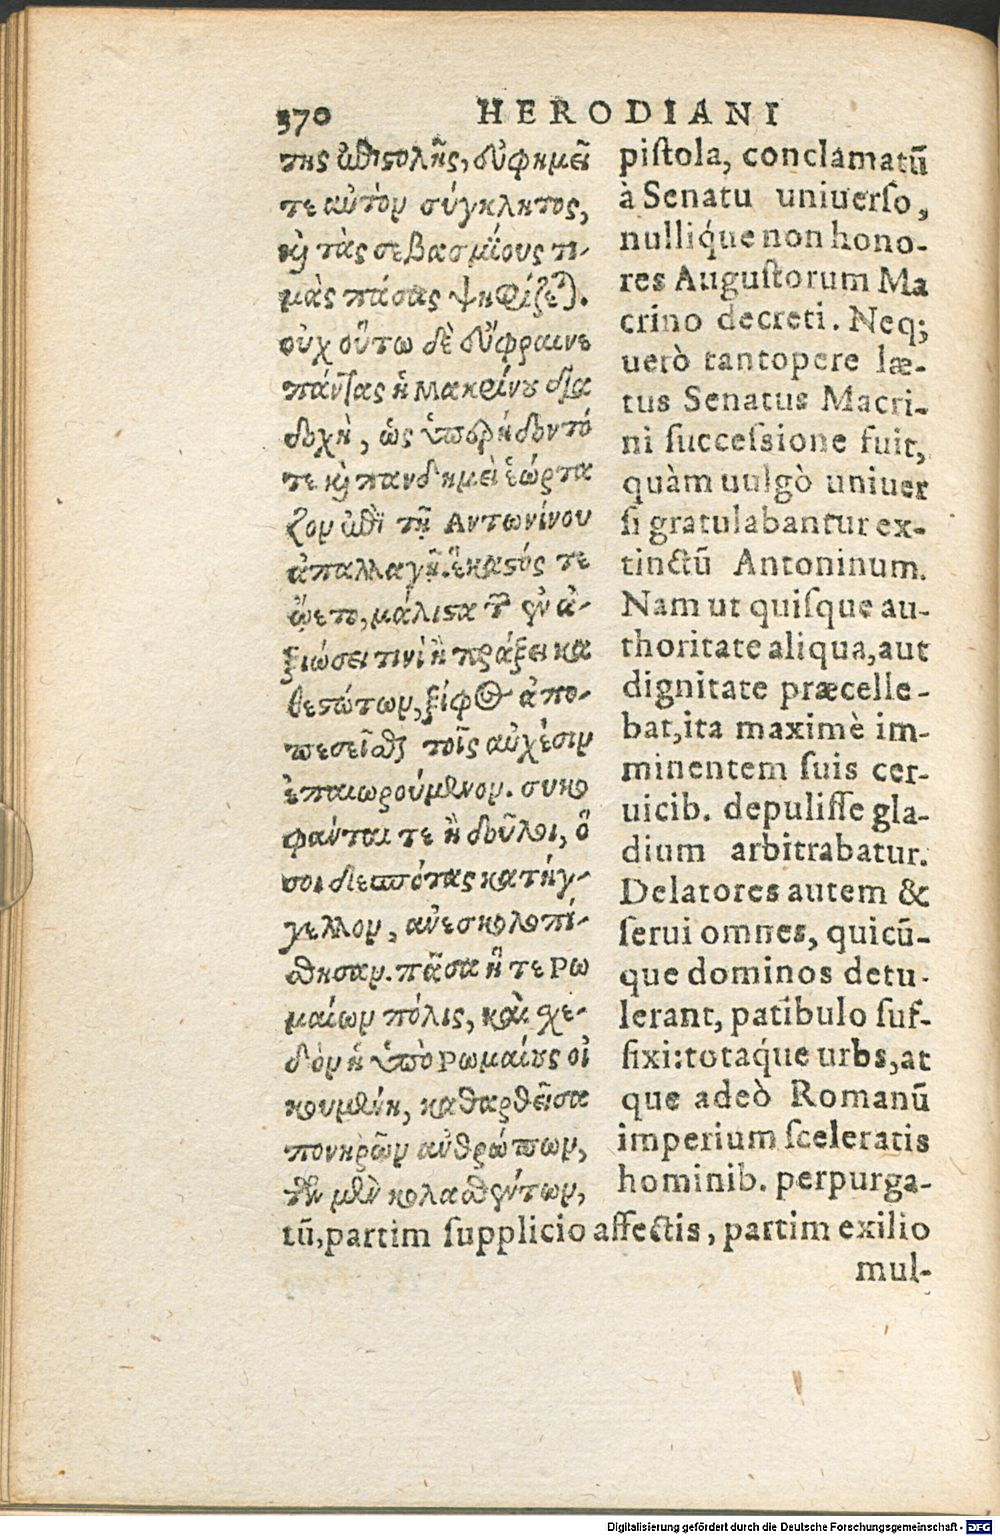 370 HERODIANI
της ἐπιστολῆς, εὐφημεῖ
τε αὐτὸν σύγκλητος,
καὶ τὰς σεβασμίους τι-
μὰς πάσας ψηφίζεται.
οὐχ οὕτω δὲ εὔφραινε
πάντας ἡ Μακρίνου δια
δοχὴ, ὡς ὑπερήδοντό
τε καὶ πανδημεὶ ἑώρτα
ζον ἐπὶ τῇ Αντωνίνου
ἀπαλλαγῇ. ἕκαστός τε
ᾤετο, μάλιστα τῶν ἐν ἀ-
ξιώσει τινὶ ἢ πράξει κα
θεστώτων, ξίφος ἀπο-
πεσεῖσθαι τοῖς αὐχέσιν
ἐπαιωρούμενον. συκο
φάνται τε ἢ δοῦλοι, ὅ
σοι δεσπότας κατήγ-
γελλον, ἀνεσκολοπί-
σθησαν. πᾶσα ἥ τε Ρω
μαίων πόλις, καὶ σχε-
δὸν ἡ ὑπὸ Ρωμαίους οἰ
κουμένη, καθαρθεῖσα
πονηρῶν ἀνθρώπων,
τῶν μὲν κολασθέντων,
pistola, conclamatū
à Senatu uniuerso,
nulliq́ue non hono-
res Augustorum Ma
crino decreti. Neq;
uerò tantopere læ-
tus Senatus Macri-
ni successione fuit,
quàm uulgò uniuer
si gratulabantur ex-
tinctū Antoninum.
Nam ut quisque au-
thoritate aliqua, aut
dignitate præcelle-
bat, ita maximè im-
minentem suis cer-
uicib. depulisse gla-
dium arbitrabatur.
Delatores autem &
serui omnes, quicū-
que dominos detu-
lerant, patibulo suf-
fixi: totaq́ue urbs, at
que adeò Romanū
imperium sceleratis
hominib. perpurga-
tū, partim supplicio affectis, partim exilio
mul-
Digitalisierung gefördert durch die Deutsche Forschungsgemeinschaft - DFG